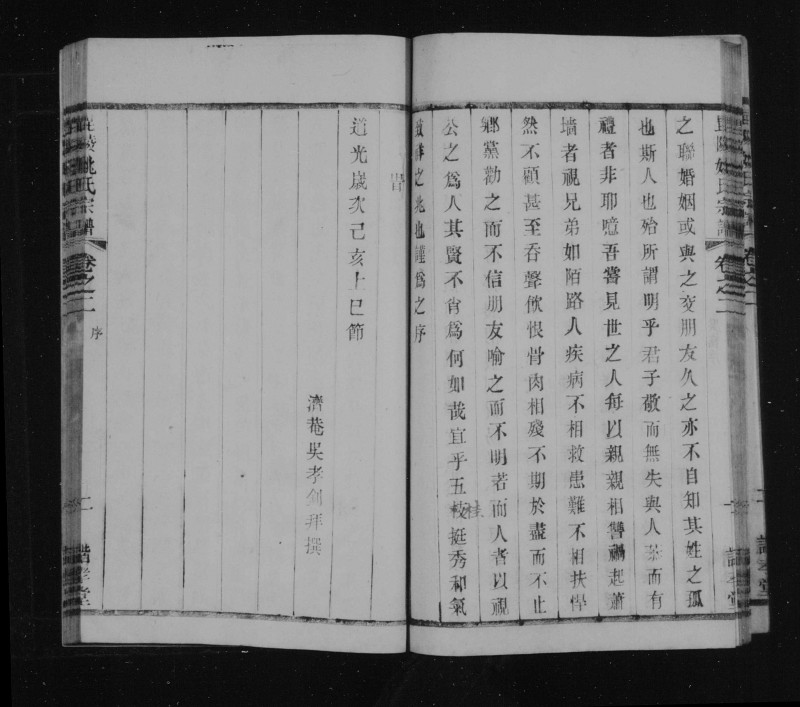 之聯婚姻或與之交朋友久之亦不自知其姓之孤
也斯人也殆所謂明乎君子敬而無失與人恭而有
禮者非耶噫吾嘗見世之人每以親親相讐禍起蕭
墻者視兄弟如陌路人疾病不相救患難不相扶悍
然不顧甚至吞聲飲恨骨肉相殘不期於盡而不止
鄉黨勸之而不信朋友喻之而不明若而人者以視
公之爲人其賢不肖爲何如哉宜乎五桂枝挺秀和氣
致祥之兆也謹爲之序
道光歲次己亥上巳節
濟菴吳孝釗拜撰
毘陵姚氏宗譜
卷之二
序
二
諧孝堂